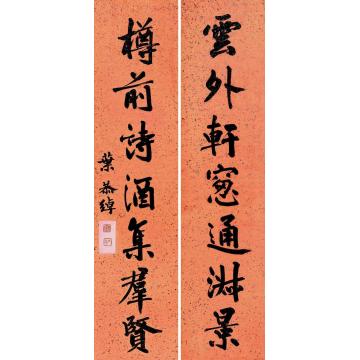 雲外軒窓通淑景
樽前詩酒集羣賢
葉恭綽